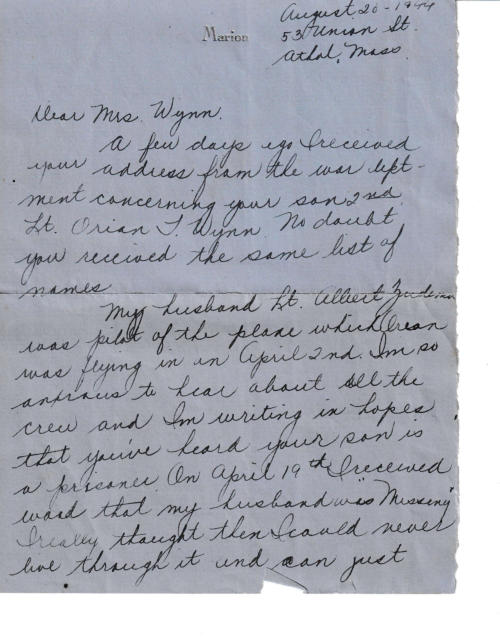 August 20 - 1944
Marion
53 Union St.
Athol, Mass.
Dear Mrs. Wynn.
A few days ego I received
your address from the war dept-
ment concerning your son 2nd
Lt. Orian T. Wynn. No doubt
you received the same list of
names
My husband Lt. Albert
was pilot of the plane which Orean
was flying in on April 2nd. Im so
anxious to hear about all the
crew and Im writing in hopes
that you've heard your son is
a prisoner. On April 19th I received
word that my husband was "Missing"
I really thought then I could never
live through it and can just